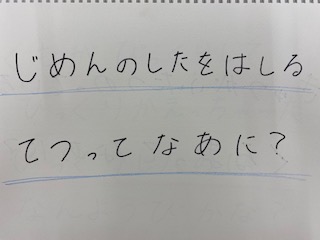 じめんのしたをはしる
てつってなあに?